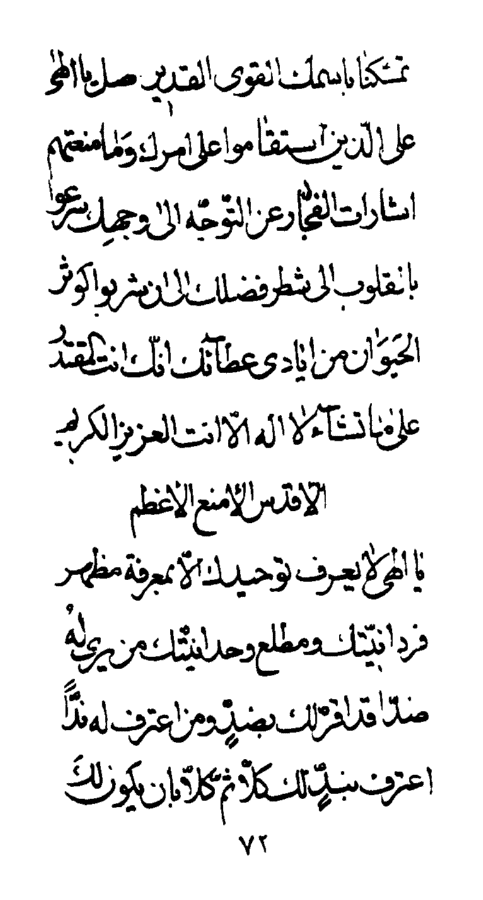 تمسّكنا باسمك القوى القدير صل يا الهى
على الّذين استقاموا على امرك و ما منعتهم
اشارات الفجّار عن التّوجّه الى وجهك سرعوا
بالقلوب الى شطر فضلك الى ان شربوا كوثر
الحيوان من ايادى عطآئك انّك انت المقتدر
على ما تشآء لا اله الّا انت العزيز الكريم
الاقدس الامنع الاعظم
يا الهى لا يعرف توحيدك الّا بمعرفة مظهر
فردانيّتك و مطلع وحدانيّتك من يرى له
ضدّا قد اقرّ لك بضدٍّ و من اعترف له ندًّا
اعترف بندٍّ لك كلّا ثمّ كلّا بان يكون لك
٧٢